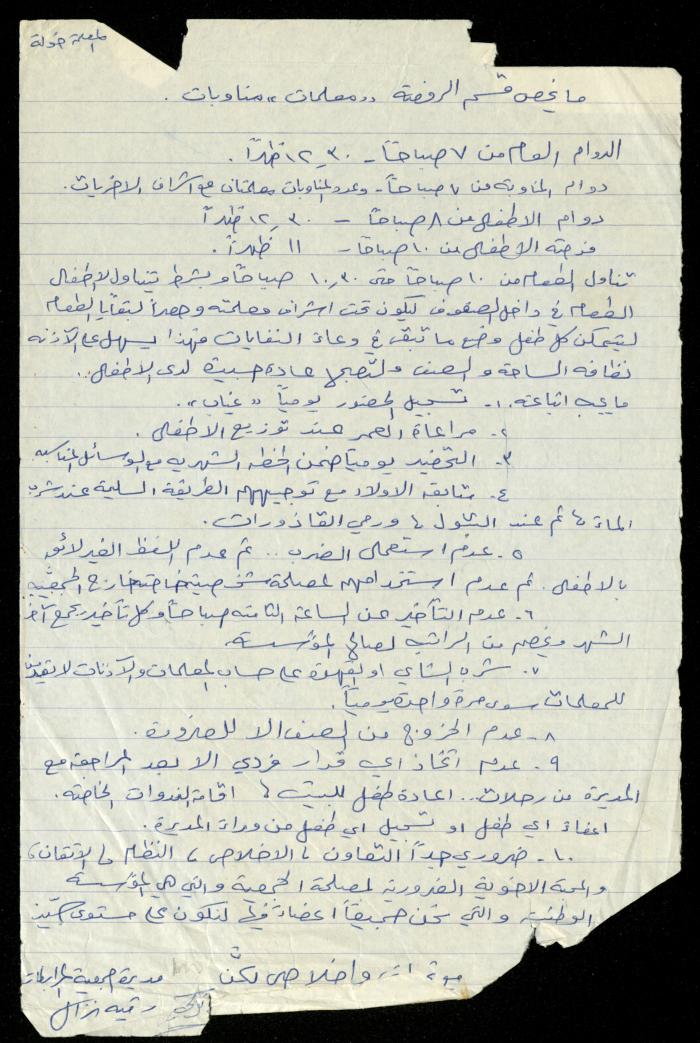 المعلمة خولة
ما يخص قسم الروضة "معلمات" مناوبات.
الدوام العام من ٧ صباحاً - ١٢,٣٠ ظهراً.
دوام المناوبة من ٧ صباحاً - وعدد المناوبات معلمتان مع اشراف الاخريات.
دوام الاطفال من ٨ صباحاً - ١٢,٣٠ ظهراً
فرصة الاطفال من ١٠ صباحاً - ١١ ظهراً.
تناول الطعام من ١٠ صباحاً حتى ١٠,٣٠ صباحاً وبشرط تناول الاطفال
الطعام في داخل الصفوف ليكون تحت اشراف معلمته وحصراً لبقايا الطعام
ليتمكن كل طفل وضع ما تبقى في وعاء النفايات فهذا يسهل على الآذنة
نظافة الساحة والصف ولتصبح عادة حسنة لدى الاطفال..
ما يجب اتباعه. ١- تسجيل الحضور يومياً "غياب".
٢- مراعاة العمر عند توزيع الاطفال.
٣- التحضير يومياً ضمن الخطة الشهرية مع الوسائل المناسبة
٤- متابعة الاولاد مع توجيههم الطريقة السليمة عند شرب
الماء، ثم عند التبول، ورمي القاذورات.
٥- عدم استعمال الضرب.. ثم عدم اللفظ الغير لائق
بالاطفال. ثم عدم استخدامهم لمصلحة شخصية خاصة خارج الجمعية
٦- عدم التأخير عن الساعة الثامنة صباحاً وكل تأخير يجمع آخر
الشهر ويخصم من الراتب لصالح المؤسسة.
٧- شرب الشاي او القهوة على حساب المعلمات والآذنات لا يقدم
للمعلمات سوى مرة واحدة يومياً.
٨- عدم الخروج من الصف الا للضرورة.
٩- عدم اتخاذ اي قرار فردي الا بعد المراجعة مع
المديرة من رحلات.. اعادة طفل للبيت، اقامة الندوات الخاصة.
اعفاء اي طفل او تسجيل اي طفل من وراء المديرة.
١٠- ضروري جداً التعاون، الاخلاص، النظام، الاتقان،
والمحبة الاخوية الضرورية لمصلحة الجمعية والتي هي المؤسسة
الوطنية والتي نحن جميعاً اعضاء فيها لنكون على مستوى مميز
واخلاصي لكنّ
مديرة جمعية المرابطات
رقية نزال